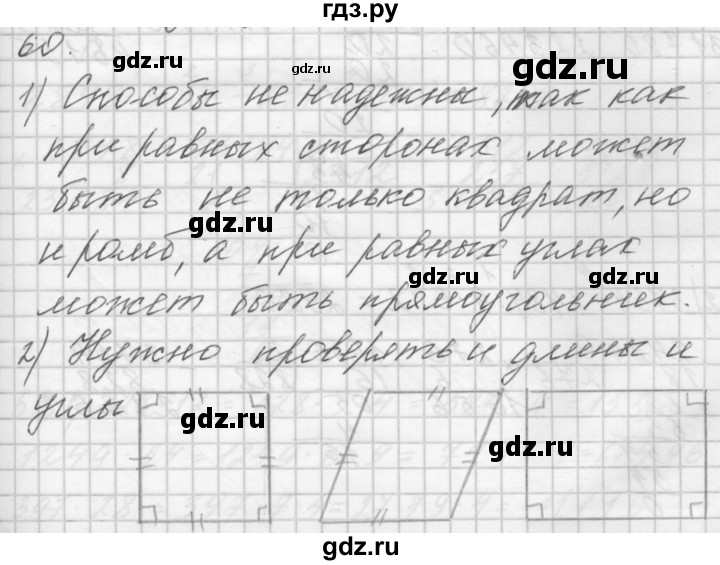 гдз.ру
60.
gdz.ru
gdz.ru
1) Способы не надежны, так как
при равных сторонах может
быть не только квадрат, но
gdz.ru
и ромб, а при равных углах
gdz.ru
gdz.ru
может быть прямоугольник.
2) Нужно проверять и длины и
углы
gdz.ru
gdz.ru
gdz.ru